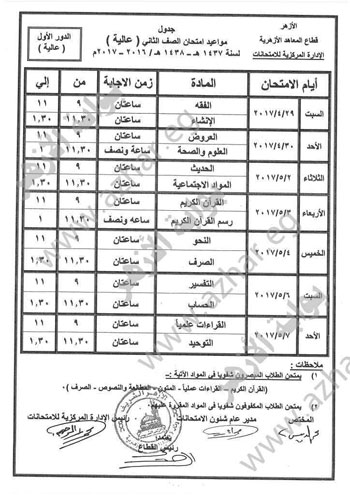 الأزهر
قطاع المعاهد الأزهرية
الإدارة المركزية للامتحانات
جدول
مواعيد امتحان الصف الثاني ( عالية )
لسنة ١٤٣٧ - ١٤٣٨ هـ / ٢٠١٦ - ٢٠١٧م
الدور الأول
( عالية )
أيام الامتحان المادة زمن الاجابة من إلي
السبت ٢٠١٧/٤/٢٩ الفقه ساعتان ٩ ١١
الإنشاء ساعتان ١١,٣٠ ١,٣٠
الأحد ٢٠١٧/٤/٣٠ العروض ساعتان ٩ ١١
العلوم والصحة ساعة ونصف ١١,٣٠ ١
الثلاثاء ٢٠١٧/٥/٢ الحديث ساعتان ٩ ١١
المواد الاجتماعية ساعتان ١١,٣٠ ١,٣٠
الأربعاء ٢٠١٧/٥/٣ القرآن الكريم ساعتان ٩ ١١
رسم القرآن الكريم ساعه ونصف ١١,٣٠ ١
الخميس ٢٠١٧/٥/٤ النحو ساعتان ٩ ١١
الصرف ساعتان ١١,٣٠ ١,٣٠
السبت ٢٠١٧/٥/٦ التفسير ساعتان ٩ ١١
الحساب ساعتان ١١,٣٠ ١,٣٠
الأحد ٢٠١٧/٥/٧ القراءات علمياً ساعتان ٩ ١١
التوحيد ساعتان ١١,٣٠ ١,٣٠
ملاحظات :
١) يمتحن الطلاب المبصرون شفويا في المواد الآتية :
(القرآن الكريم - القراءات عملياً - المتون - المطالعة والنصوص - الصرف )
٢) يمتحن الطلاب المكفوفون شفويا في المواد المقررة عليهم
المختص
مدير عام شئون الامتحانات
رئيس الإدارة المركزية للامتحانات
يعتمد؛
رئيس القطاع
بوابة الأزهر
www.azhar.eg